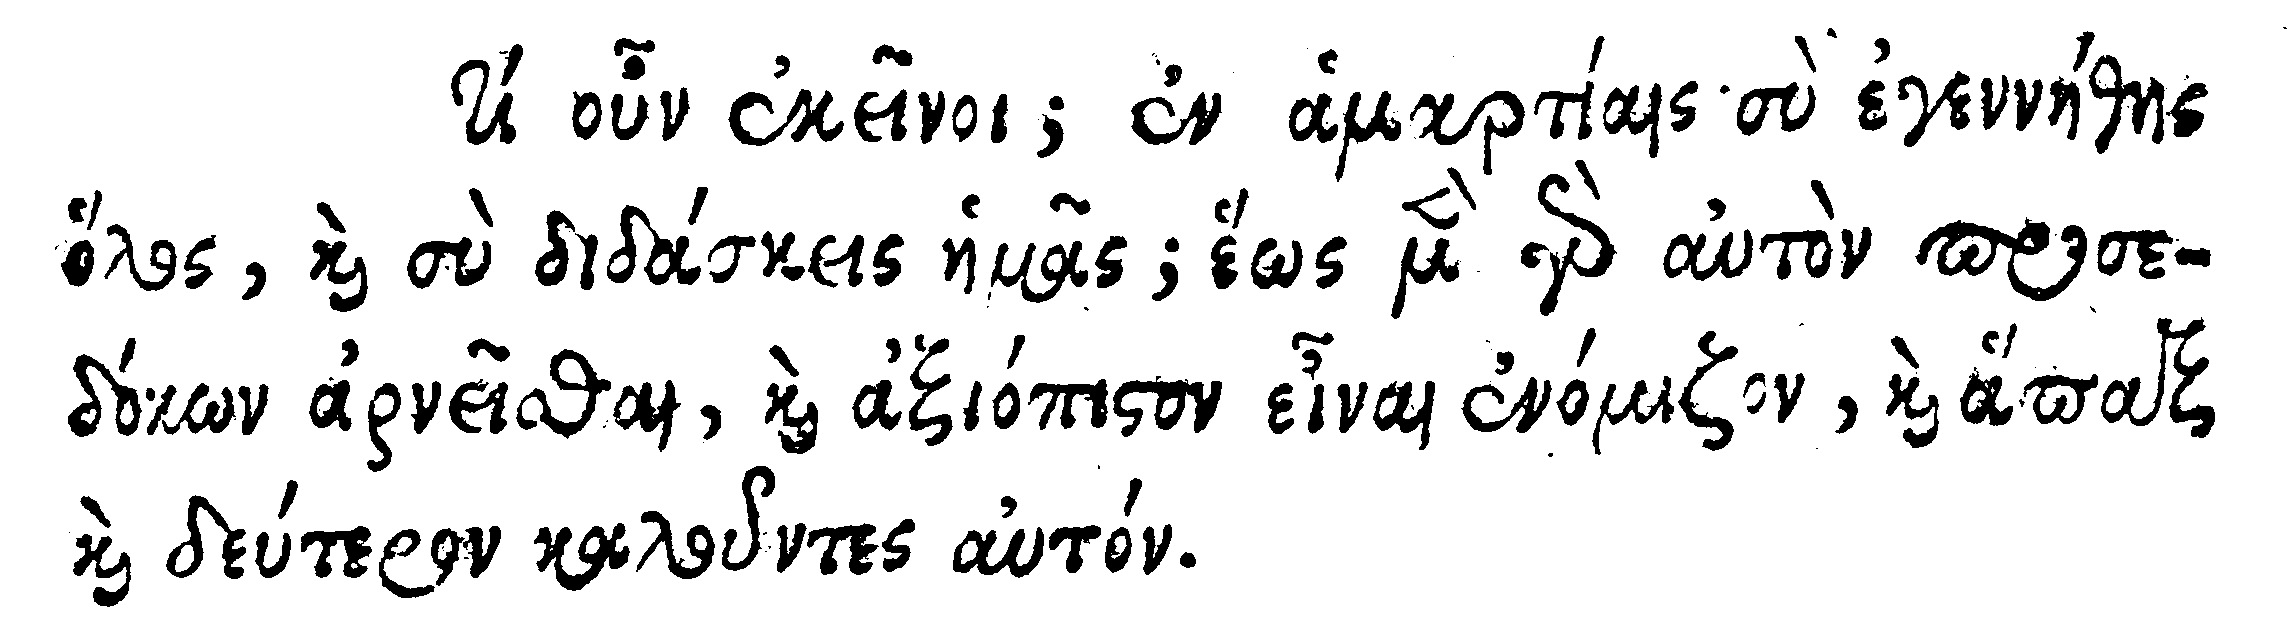 Τί οὖν ἐκεῖνοι; ἐν ἁμαρτίαις σὺ ἐγεννήθης
ὅλος, καὶ σὺ διδάσκεις ἡμᾶς; ἕως μὲν γὰρ αὐτὸν προσε-
δόκων ἀρνεῖσθαι, καὶ ἀξιόπιστον εἶναι ἐνόμιζον, καὶ ἅπαξ
καὶ δεύτερον καλοῦντες αὐτόν.